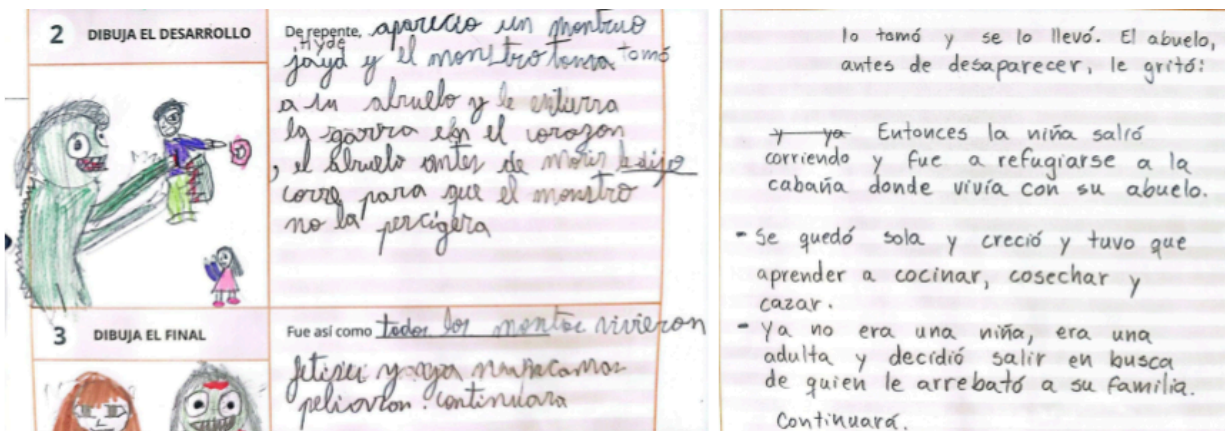 2 DIBUJA EL DESARROLLO
De repente, aparecio un montruo
hyde
jayd y el monstro toma tomó
a su abuelo y le enturra
la garra en el corazon
, el abuelo antes de morir le dijo
corre para que el monstro
no la percigera
3 DIBUJA EL FINAL
Fue así como todos los vivieron
y
peliaron. Continuara
lo tomó y se lo llevó. El abuelo,
antes de desaparecer, le gritó:
y ya Entonces la niña salió
corriendo y fue a refugiarse a la
cabaña donde vivía con su abuelo.
- Se quedó sola y creció y tuvo que
aprender a cocinar, cosechar y
cazar.
- Ya no era una niña, era una
adulta y decidió salir en busca
de quien le arrebató a su familia.
Continuará.